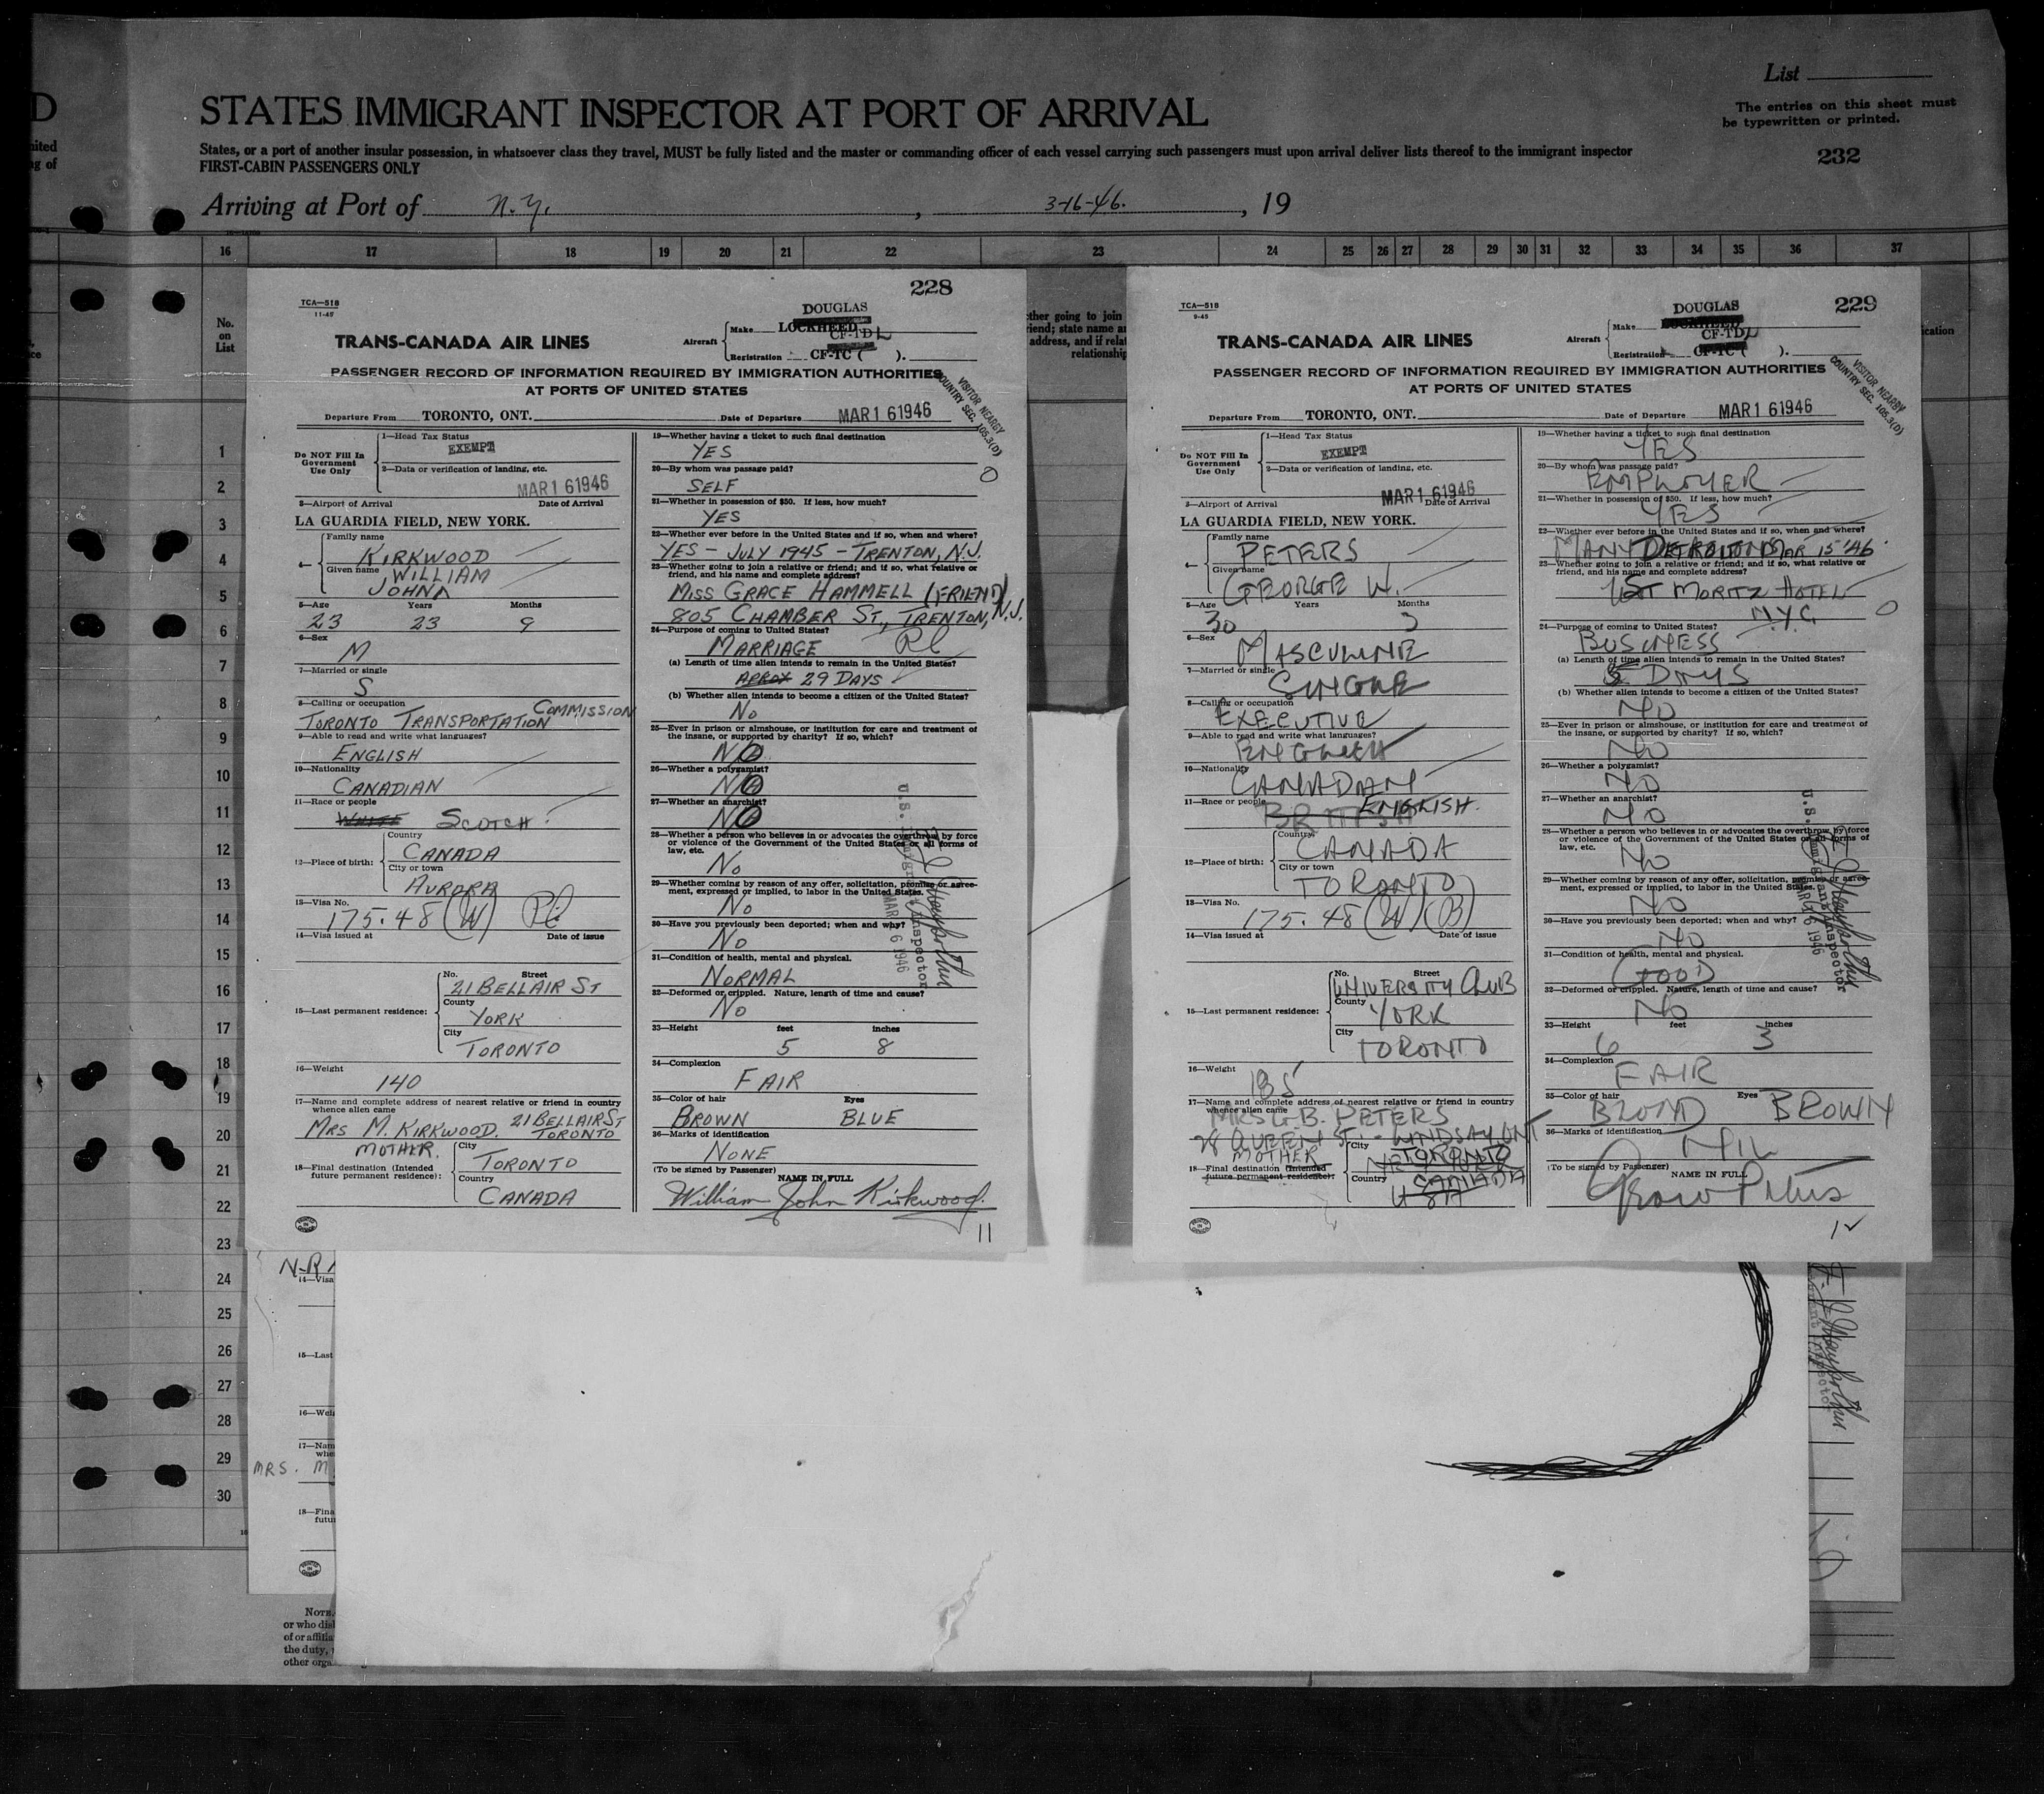 D
nited
ng of
List
STATES IMMIGRANT INSPECTOR AT PORT OF ARRIVAL
The entries on this sheet must
be typewritten or printed.
States, or a port of another insular possession, in whatsoever class they travel, MUST be fully listed and the master or commanding officer of each vessel carrying such passengers must upon arrival deliver lists thereof to the immigrant inspector
FIRST-CABIN PASSENGERS ONLY
232
Arriving at Port of N.Y. , 3-16-46. , 19
16 17 18 19 20 21 22 23 24 25 26 27 28 29 30 31 32 33 34 35 36 37
No.
on
List
1
2
3
4
5
6
7
8
9
10
11
12
13
14
15
16
17
18
19
20
21
22
23
24
25
26
27
28
29
30
228
TCA—518
11-45
TRANS-CANADA AIR LINES
Aircraft
DOUGLAS
Make LOCKHEED
CF-TDL
Registration CF-TC ( ).
PASSENGER RECORD OF INFORMATION REQUIRED BY IMMIGRATION AUTHORITIES
AT PORTS OF UNITED STATES
VISITOR NEARBY
COUNTRY SEC. 105.3(D)
Departure From TORONTO, ONT. Date of Departure MAR 16 1946
Do NOT Fill In
Government
Use Only
1—Head Tax Status
EXEMPT
2—Data or verification of landing, etc.
MAR 16 1946
3—Airport of Arrival Date of Arrival
LA GUARDIA FIELD, NEW YORK.
4— Family name
KIRKWOOD
Given name WILLIAM
JOHN
5—Age Years Months
23 23 9
6—Sex
M
7—Married or single
S
8—Calling or occupation
TORONTO TRANSPORTATION COMMISSION
9—Able to read and write what languages?
ENGLISH
10—Nationality
CANADIAN
11—Race or people
WHITE SCOTCH.
12—Place of birth:
Country
CANADA
City or town
AURORA
13—Visa No.
175.48 (W)
14—Visa issued at Date of issue
15—Last permanent residence:
No. Street
21 BELLAIR ST
County
YORK
City
TORONTO
16—Weight
140
17—Name and complete address of nearest relative or friend in country
whence alien came
MRS M. KIRKWOOD. 21 BELLAIR ST
TORONTO
MOTHER.
18—Final destination (Intended
future permanent residence):
City
TORONTO
Country
CANADA
19—Whether having a ticket to such final destination
YES
20—By whom was passage paid?
SELF
21—Whether in possession of $50. If less, how much?
YES
22—Whether ever before in the United States and if so, when and where?
YES - JULY 1945 - TRENTON, N.J.
23—Whether going to join a relative or friend; and if so, what relative or
friend, and his name and complete address?
MISS GRACE HAMMELL (FRIEND)
805 CHAMBER ST., TRENTON, N.J.
24—Purpose of coming to United States?
MARRIAGE
(a) Length of time alien intends to remain in the United States?
APROX 29 DAYS
(b) Whether alien intends to become a citizen of the United States?
NO
25—Ever in prison or almshouse, or institution for care and treatment of
the insane, or supported by charity? If so, which?
NO
26—Whether a polygamist?
NO
27—Whether an anarchist?
NO
28—Whether a person who believes in or advocates the overthrow by force
or violence of the Government of the United States or all forms of
law, etc.
NO
29—Whether coming by reason of any offer, solicitation, promise or agree-
ment, expressed or implied, to labor in the United States.
NO
30—Have you previously been deported; when and why?
NO
31—Condition of health, mental and physical.
NORMAL
32—Deformed or crippled. Nature, length of time and cause?
NO
33—Height feet inches
5 8
34—Complexion
FAIR
35—Color of hair Eyes
BROWN BLUE
36—Marks of identification
NONE
(To be signed by Passenger)
NAME IN FULL
William John Kirkwood.
11
U.S. Immigrant Inspector
MAR 16 1946
229
TCA—518
9-45
TRANS-CANADA AIR LINES
Aircraft
DOUGLAS
Make LOCKHEED
CF-TDL
Registration CF-TC ( ).
PASSENGER RECORD OF INFORMATION REQUIRED BY IMMIGRATION AUTHORITIES
AT PORTS OF UNITED STATES
VISITOR NEARBY
COUNTRY SEC. 105.3(D)
Departure From TORONTO, ONT. Date of Departure MAR 16 1946
Do NOT Fill In
Government
Use Only
1—Head Tax Status
EXEMPT
2—Data or verification of landing, etc.
MAR 16 1946
3—Airport of Arrival Date of Arrival
LA GUARDIA FIELD, NEW YORK.
4— Family name
PETERS
Given name
GEORGE W.
5—Age Years Months
30 3
6—Sex
MASCULINE
7—Married or single
SINGLE
8—Calling or occupation
EXECUTIVE
9—Able to read and write what languages?
ENGLISH
10—Nationality
CANADIAN
11—Race or people
BRITISH ENGLISH.
12—Place of birth:
Country
CANADA
City or town
TORONTO
13—Visa No.
175.48 (W) (B)
14—Visa issued at Date of issue
15—Last permanent residence:
No. Street
UNIVERSITY CLUB
County
YORK
City
TORONTO
16—Weight
185
17—Name and complete address of nearest relative or friend in country
whence alien came
MRS G.B. PETERS
28 QUEEN ST. - LINDSAY, ONT
MOTHER
18—Final destination (Intended
future permanent residence):
City
TORONTO
Country
CANADA
USA
19—Whether having a ticket to such final destination
YES
20—By whom was passage paid?
EMPLOYER
21—Whether in possession of $50. If less, how much?
YES
22—Whether ever before in the United States and if so, when and where?
MANY DETROIT MAR 15 '46
23—Whether going to join a relative or friend; and if so, what relative or
friend, and his name and complete address?
ST MORITZ HOTEL
N.Y.C
24—Purpose of coming to United States?
BUSINESS
(a) Length of time alien intends to remain in the United States?
5 DAYS
(b) Whether alien intends to become a citizen of the United States?
NO
25—Ever in prison or almshouse, or institution for care and treatment of
the insane, or supported by charity? If so, which?
NO
26—Whether a polygamist?
NO
27—Whether an anarchist?
NO
28—Whether a person who believes in or advocates the overthrow by force
or violence of the Government of the United States or all forms of
law, etc.
NO
29—Whether coming by reason of any offer, solicitation, promise or agree-
ment, expressed or implied, to labor in the United States.
NO
30—Have you previously been deported; when and why?
NO
31—Condition of health, mental and physical.
GOOD
32—Deformed or crippled. Nature, length of time and cause?
NO
33—Height feet inches
6 3
34—Complexion
FAIR
35—Color of hair Eyes
BLOND BROWN
36—Marks of identification
NIL
(To be signed by Passenger)
NAME IN FULL
U.S. Immigrant Inspector
MAR 16 1946
N-R
14—Visa
15—Last
16—Wei
17—Nam
whe
MRS. M
18—Fina
futu
NOTE.
or who dis
of or affilia
the duty,
other orga